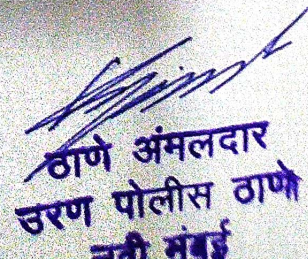 ठाणे अंमलदार
उरण पोलीस ठाणे
नवी मंबई